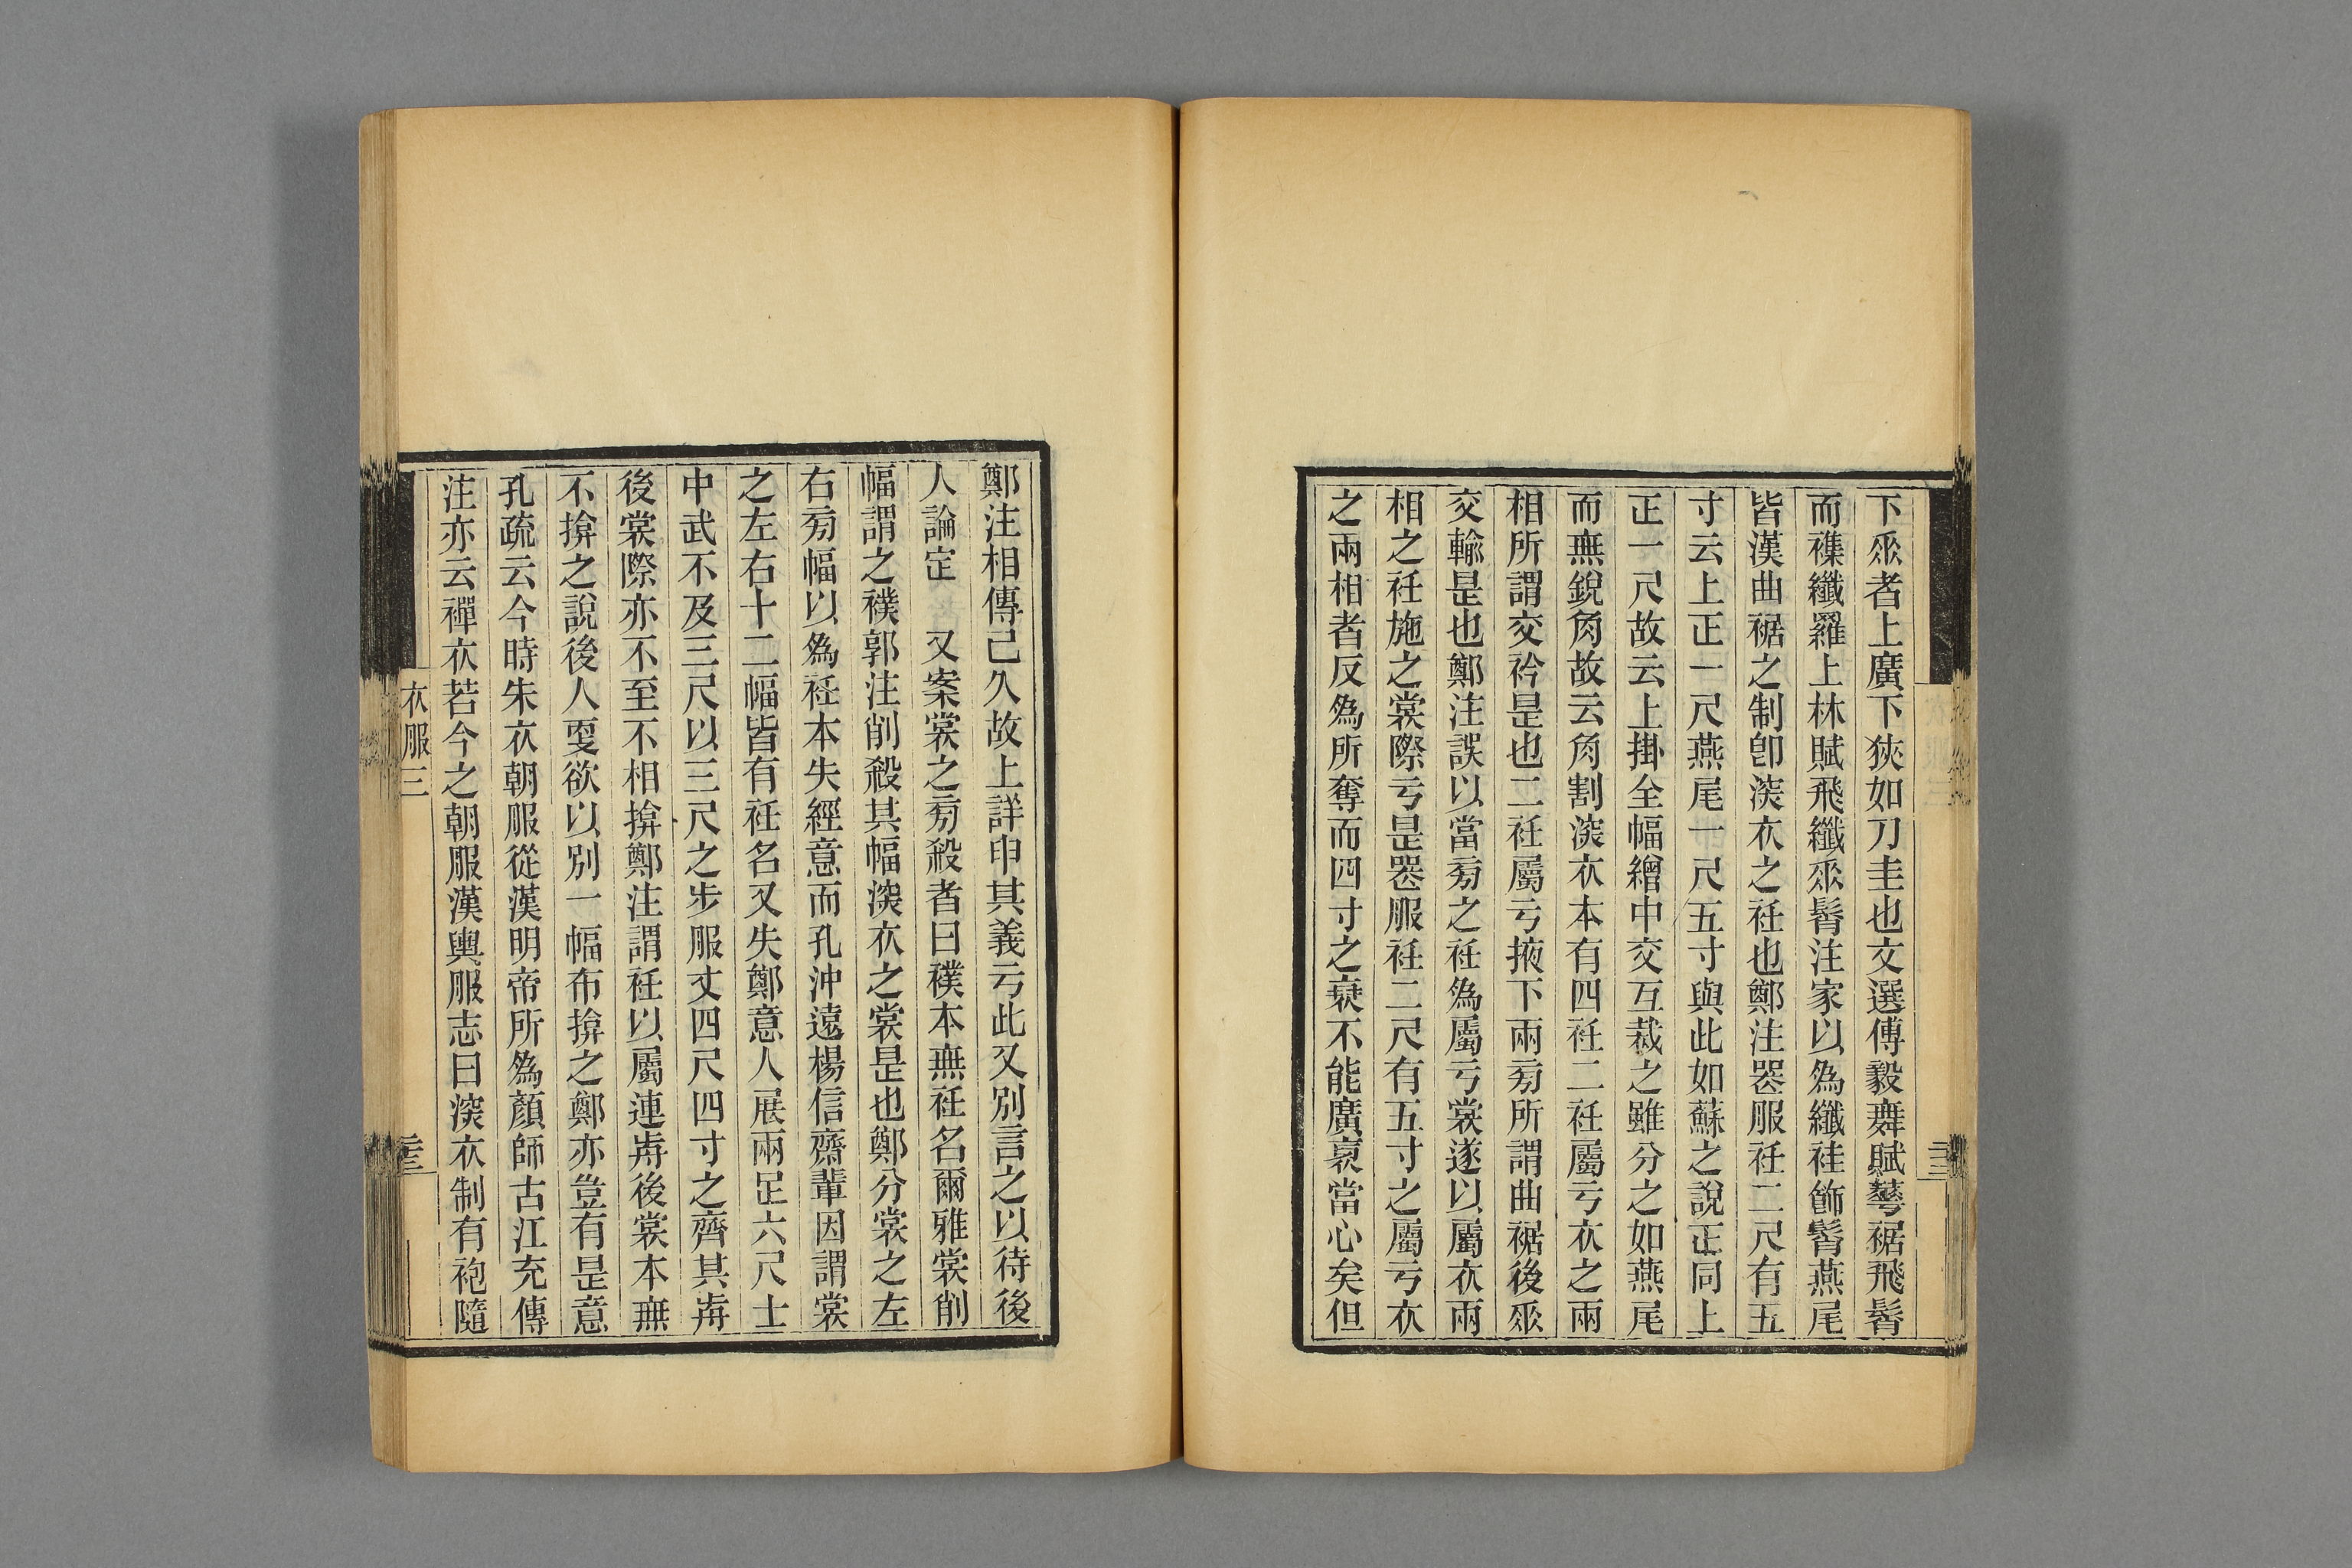 下𠂹者上廣下狹如刀圭也文選傅毅舞賦𦾓裾飛髾
而襍纖羅上林賦飛纖𠂹髾注家以爲纖袿飾髾燕尾
皆漢曲裾之制卽深衣之衽也鄭注喪服衽二尺有五
寸云上正一尺燕尾一尺五寸與此如蘇之說正同上
正一尺故云上掛全幅繒中交互裁之雖分之如燕尾
而無銳角故云角割深衣本有四衽二衽屬亏衣之兩
相所謂交衿是也二衽屬亏掖下兩旁所謂曲裾後𠂹
交輸是也鄭注誤以當旁之衽爲屬亏裳遂以屬衣兩
相之衽施之裳際亏是喪服衽二尺有五寸之屬亏衣
之兩相者反爲所奪而四寸之衰不能廣袤當心矣但
鄭注相傳已久故上詳申其義亏此又別言之以待後
人論定 又案裳之旁殺者曰襆本無衽名爾雅裳削
幅謂之襆郭注削殺其幅深衣之裳是也鄭分裳之左
右旁幅以爲衽本失經意而孔沖遠楊信齋輩因謂裳
之左右十二幅皆有衽名又失鄭意人展兩足六尺士
中武不及三尺以三尺之步服丈四尺四寸之齊其歬
後裳際亦不至不相揜鄭注謂衽以屬連歬後裳本無
不揜之說後人㪅欲以別一幅布揜之鄭亦豈有是意
孔疏云今時朱衣朝服從漢明帝所爲顏師古江充傳
注亦云襌衣若今之朝服漢輿服志曰深衣制有袍隨
衣服三
二十三